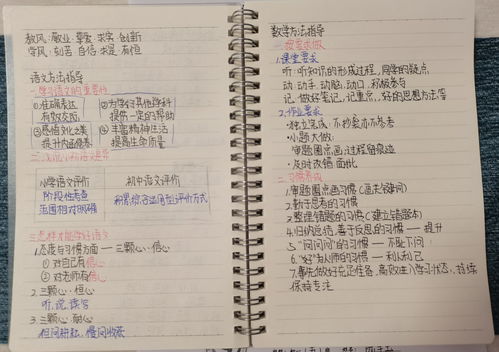 教风:敬业·挚爱·求实·创新
学风:刻苦·自信·求是·有恒
语文方法指导
一.学习语文的重要性
①准确表达
有效交际
②为学习其他学科
提供一定的帮助
③感悟文化之美
提升内涵修养
④丰富精神生活
提高生命质量
小学语文评价
初中语文评价
阶段性考查
范围相对明确
积累综合运用型评价方式
三.怎样才能学好语文
1.态度与习惯方面——三颗心·信心
①对自己有信心
②对老师有信心
2.三颗心·恒心
听、说、读、写
3.三颗心·耐心
但问耕耘,慢问收获
数学方法指导
一.按要求做
1.课堂要求
听:听知识的形成过程,同学的疑点
动:动手,动脑,动口,积极参与
记:做好笔记,记重点,好的思想方法等
2.作业要求
·独立完成:不抄袭亦不参考
·小题大做:
审题圈点画,过程留痕迹
·及时改错·面批
二.习惯养成
1.审题圈点画习惯(画关键词)
2.勤于思考的习惯
3.整理错题的习惯(建立错题本)
4.归纳总结,善于反思的习惯——提升
5."问问问"的习惯——不耻下问
6."好"为人师的习惯——利人利己
7.事先做好充足准备,高效进入学习状态,持续
保持专注